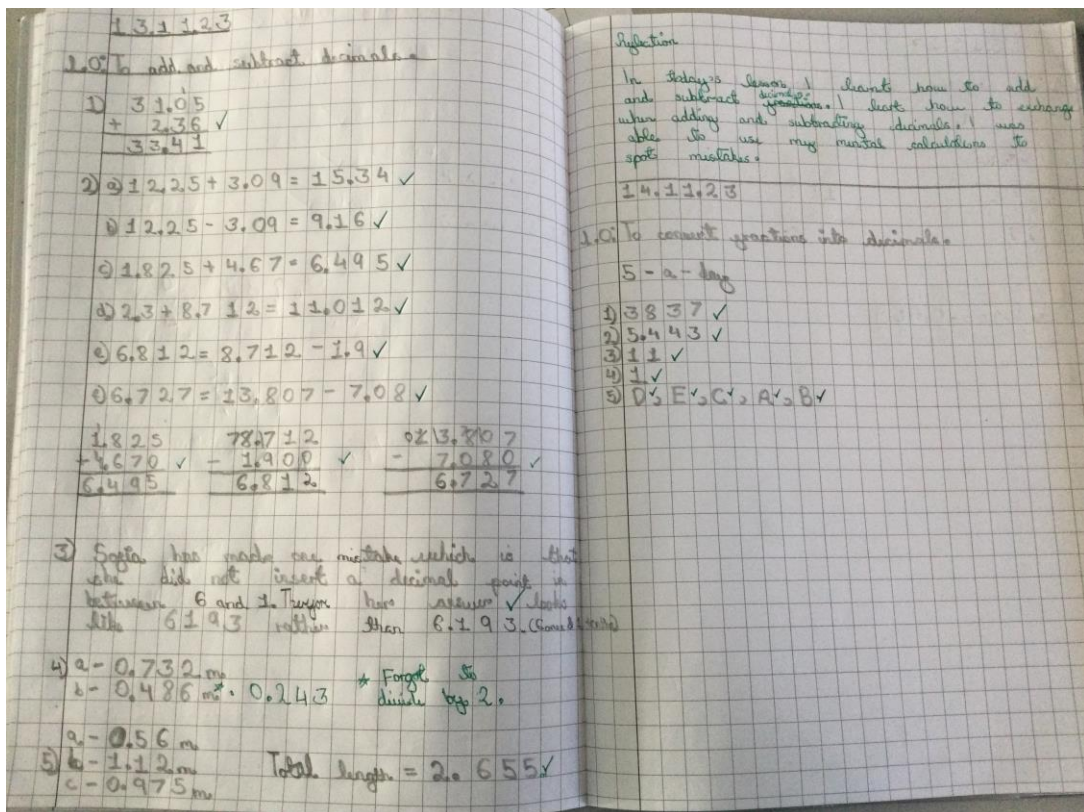 13.11.23
L.O: To add and subtract decimals.
1) 31.05
+ 2.36 ✓
33.41
2) a) 12.25 + 3.09 = 15.34 ✓
b) 12.25 - 3.09 = 9.16 ✓
c) 1.825 + 4.67 = 6.495 ✓
d) 2.3 + 8.712 = 11.012 ✓
e) 6.812 = 8.712 - 1.9 ✓
6.727 = 13.807 - 7.08 ✓
1.825
+ 4.670 ✓
6.495
78.1712
- 1.900 ✓
6.812
13.807
- 7.080 ✓
6.727
3) has made one mistake which is that
she did not insert a decimal point in
between 6 and 1. her answer ✓ looks
like 6193 rather than 6.193.
4) a - 0.732 m
b - 0.486 m * 0.243 * Forgot to
divide by 2.
a - 0.56 m
5) b - 1.12 m Total length = 2.655 ✓
c - 0.975 m
Reflection
In today's lesson I learnt how to add
and subtract decimals. I leart how to exchange
when adding and subtracting decimals. I was
able to use my mental calculations to
spot mistakes.
14.11.23
L.O: To convert fractions into decimals.
5-a-day
1) 3837 ✓
2) 5.443 ✓
3) 11 ✓
4) 1 ✓
5) D ✓, E ✓, C ✓, A ✓, B ✓